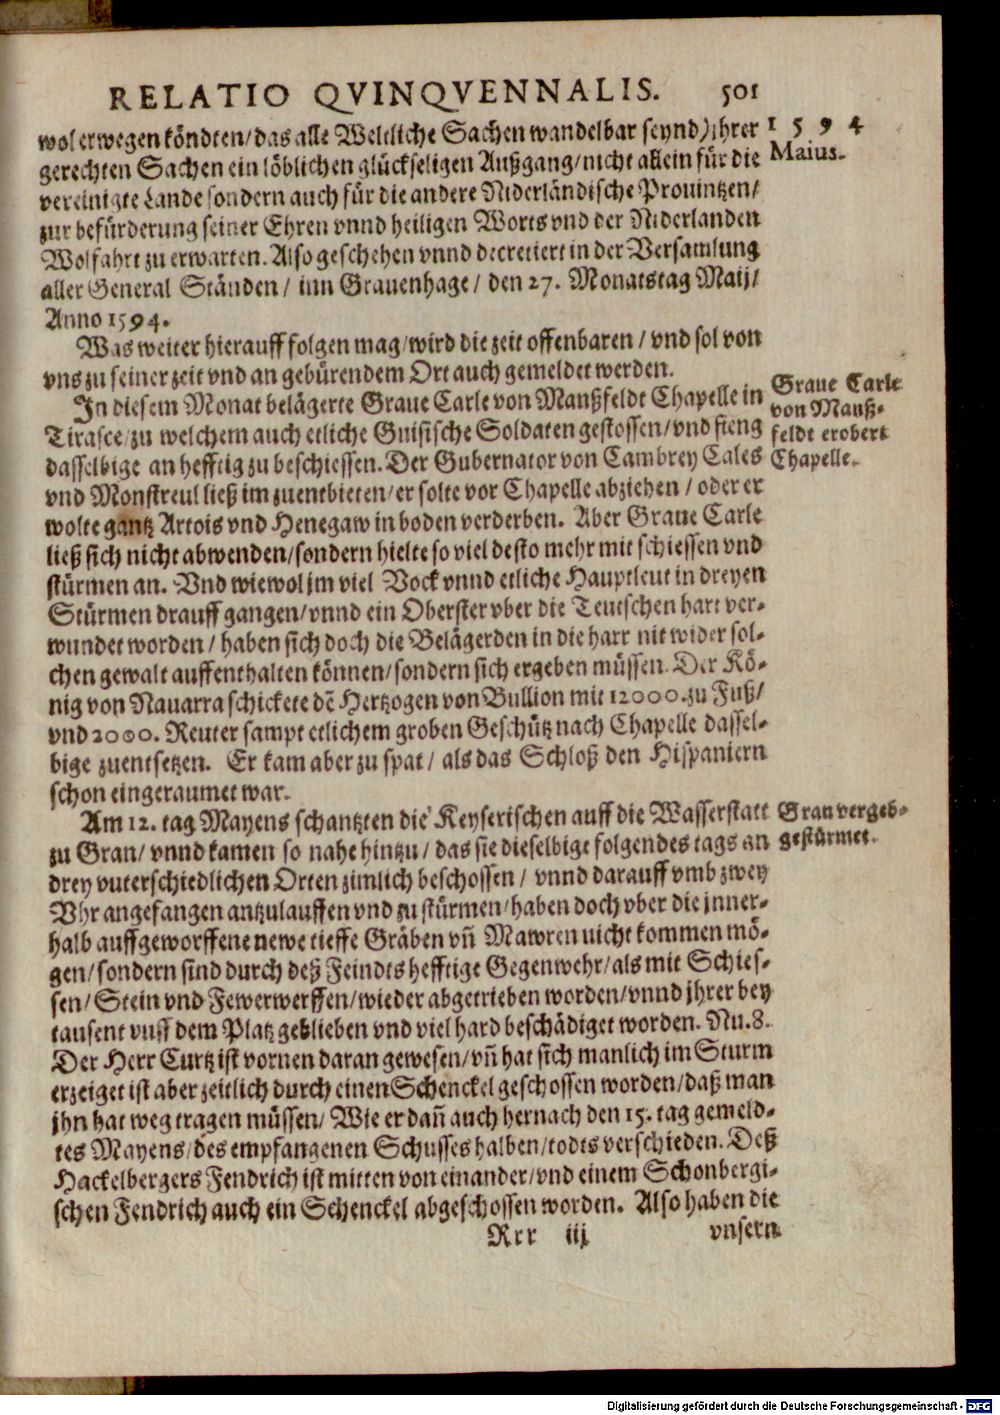 RELATIO QVINQVENNALIS. 501
1 5 9 4
Maius.
wol erwegen köndten/das alle Weltliche Sachen wandelbar seynd) jhrer
gerechten Sachen ein löblichen glückseligen Außgang/nicht allein für die
vereinigte Lande sondern auch für die andere Niderländische Prouintzen/
zur befürderung seiner Ehren vnnd heiligen Worts vnd der Niderlanden
Wolfahrt zu erwarten. Also geschehen vnnd decretiert in der Versamlung
aller General Ständen/ inn Grauenhage/ den 27. Monatstag Maij/
Anno 1594.
Was weiter hierauff folgen mag/wird die zeit offenbaren/ vnd sol von
vns zu seiner zeit vnd an gebürendem Ort auch gemeldet werden.
Graue Carle
von Manß-
feldt erobert
Chapelle.
In diesem Monat belägerte Graue Carle von Manßfeldt Chapelle in
Tirasce/zu welchem auch etliche Guisische Soldaten gestossen/vnd fieng
dasselbige an hefftig zu beschiessen. Der Gubernator von Cambrey Cales
vnd Monstreul ließ im zuentbieten/er solte vor Chapelle abziehen/ oder er
wolte gantz Artois vnd Henegaw in boden verderben. Aber Graue Carle
ließ sich nicht abwenden/sondern hielte so viel desto mehr mit schiessen vnd
stürmen an. Vnd wiewol jm viel Vock vnnd etliche Hauptleut in dreyen
Stürmen drauff gangen/vnnd ein Oberster vber die Teutschen hart ver-
wundet worden/ haben sich doch die Belägerden in die harr nit wider sol-
chen gewalt auffenthalten können/sondern sich ergeben müssen. Der Kö-
nig von Nauarra schickete dē Hertzogen von Bullion mit 12000. zu Fuß/
vnd 2000. Reuter sampt etlichem groben Geschütz nach Chapelle dassel-
bige zuentsetzen. Er kam aber zu spat/ als das Schloß den Hispaniern
schon eingeraumet war.
Gran vergeb-
gestürmet.
Am 12. tag Mayens schantzten die Keyserischen auff die Wasserstatt
zu Gran/ vnnd kamen so nahe hintzu/ das sie dieselbige folgendes tags an
drey vuterschiedlichen Orten zimlich beschossen/ vnnd darauff vmb zwey
Vhr angefangen antzulauffen vnd zu stürmen/haben doch vber die jnner-
halb auffgeworffene newe tieffe Gräben vñ Mawren uicht kommen mö-
gen/sondern sind durch deß Feindts hefftige Gegenwehr/als mit Schies-
sen/Stein vnd Fewerwerffen/wieder abgetrieben worden/vnnd jhrer bey
tausent vuff dem Platz geblieben vnd viel hard beschädiget worden. Nu.8.
Der Herr Curtz ist vornen daran gewesen/vñ hat sich manlich im Sturm
erzeiget ist aber zeitlich durch einen Schenckel geschossen worden/daß man
jhn hat weg tragen müssen/ Wie er dañ auch hernach den 15. tag gemeld-
tes Mayens/des empfangenen Schusses halben/todts verschieden. Deß
Hackelbergers Fendrich ist mitten von einander/vnd einem Schonbergi-
schen Fendrich auch ein Schenckel abgeschossen worden. Also haben die
Rrr iij vnsern
Digitalisierung gefördert durch die Deutsche Forschungsgemeinschaft - DFG